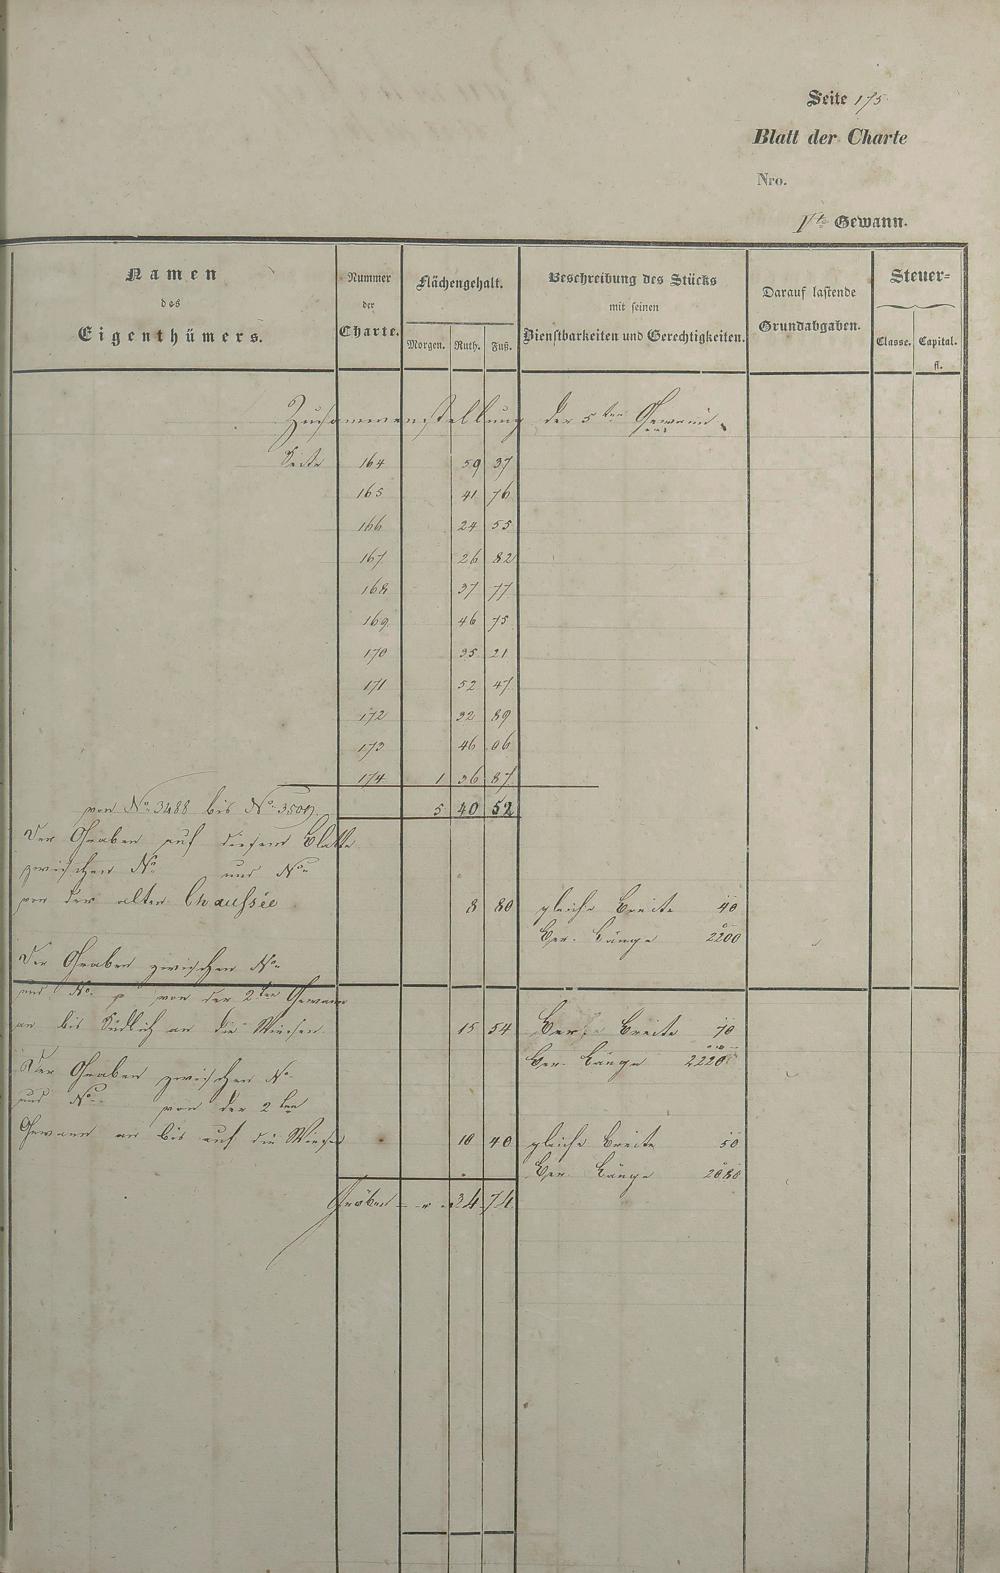 Seite 175
Blatt der Charte
Nro.
Vte Gewann.
Namen des Eigenthümers.
Nummer der Charte.
Flächengehalt.
Morgen. Ruth. Fuß.
Beschreibung des Stücks mit seinen Dienstbarkeiten und Gerechtigkeiten.
Darauf lastende Grundabgaben.
Steuer=
Classe. Capital. fl.
Zusammenstellung der 5ten Gewann
Seite 164 59 37
165 41 76
166 24 55
167 26 82
168 37 77
169 46 75
170 35 21
171 52 47
172 32 89
173 46 06
174 1 36 87
von No. 3488 bis No. 5 40 52
Der Graben auf diesem Blatte
zwischen No. und No.
von der alten Chaussée 8 80 gleiche Breite 40
Ger. Länge 2200
Der Graben zwischen No.
und No. von der 2ten Gewann
an bis südlich an die Wiesen 15 54 Ger. Breite 70
Ger. Länge 2220
Der Graben zwischen No.
und No. von der 2ten
Gewann an bis auf die Wiesen 10 40 gleiche Breite 50
Ger. Länge 2080
Gräben 34 74